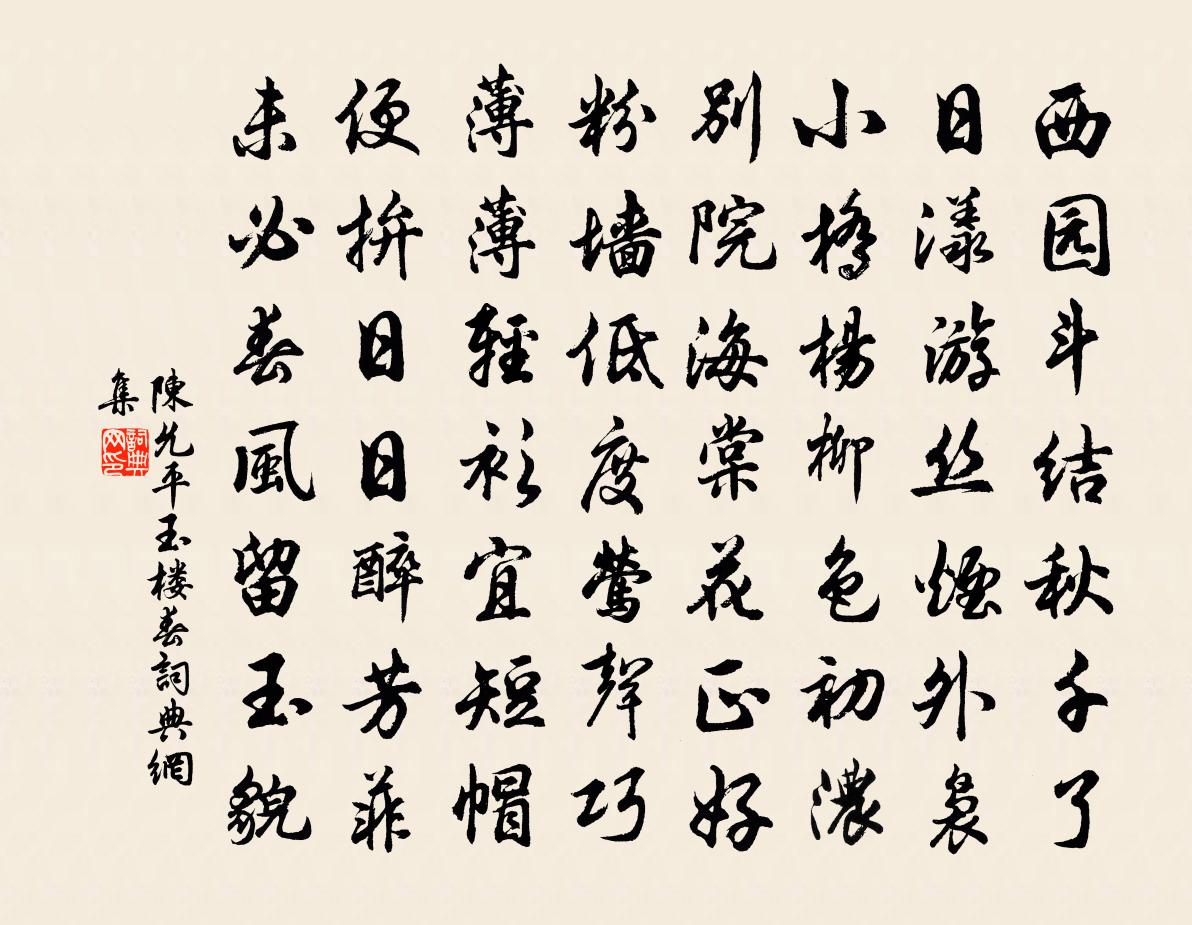 西园斗结秋千了
日漾游丝煙外袅
小橋楊柳色初濃
别院海棠花正好
粉墙低度莺聲巧
薄薄輕衫宜短帽
便拚日日醉芳菲
未必春風留玉貌
陳允平玉楼春詞典網
集
詞典網印